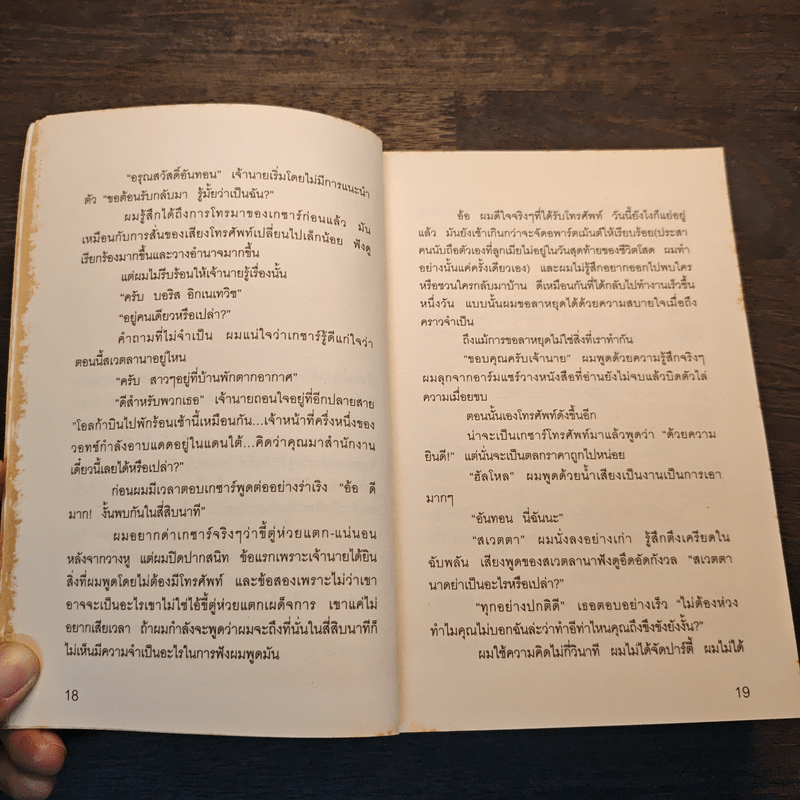 "อรุณสวัสดิ์อันทอน" เจ้านายเริ่มโดยไม่มีการแนะนำ
ตัว "ขอต้อนรับกลับมา รู้มั้ยว่าเป็นฉัน?"
ผมรู้สึกได้ถึงการโทรมาของเกซาร์ก่อนแล้ว มัน
เหมือนกับการสั่นของเสียงโทรศัพท์เปลี่ยนไปเล็กน้อย ฟังดู
เรียกร้องมากขึ้นและวางอำนาจมากขึ้น
แต่ผมไม่รีบร้อนให้เจ้านายรู้เรื่องนั้น
"ครับ บอริส อิกเนเทวิช"
"อยู่คนเดียวหรือเปล่า?"
คำถามที่ไม่จำเป็น ผมแน่ใจว่าเกซาร์รู้ดีแก่ใจว่า
ตอนนี้สเวตลานาอยู่ไหน
"ครับ สาวๆอยู่ที่บ้านพักตากอากาศ"
"ดีสำหรับพวกเธอ" เจ้านายถอนใจอยู่ที่อีกปลายสาย
"โอลก้าบินไปพักร้อนเช้านี้เหมือนกัน...เจ้าหน้าที่ครึ่งหนึ่งของ
วอทช์กำลังอาบแดดอยู่ในแดนใต้...คิดว่าคุณมาสำนักงาน
เดี๋ยวนี้เลยได้หรือเปล่า?"
ก่อนผมมีเวลาตอบเกซาร์พูดต่ออย่างร่าเริง "อ้อ ดี
มาก! งั้นพบกันในสี่สิบนาที"
ผมอยากด่าเกซาร์จริงๆว่าขี้ตู่ห่วยแตก-แน่นอน
หลังจากวางหู แต่ผมปิดปากสนิท ข้อแรกเพราะเจ้านายได้ยิน
สิ่งที่ผมพูดโดยไม่ต้องมีโทรศัพท์ และข้อสองเพราะไม่ว่าเขา
อาจจะเป็นอะไรเขาไม่ใช่ไอ้ขี้ตู่ห่วยแตกเผด็จการ เขาแค่ไม่
อยากเสียเวลา ถ้าผมกำลังจะพูดว่าผมจะถึงที่นั่นในสี่สิบนาทีก็
ไม่เห็นมีความจำเป็นอะไรในการฟังผมพูดมัน
18
อ้อ ผมดีใจจริงๆที่ได้รับโทรศัพท์ วันนี้ยังไงก็แย่อยู่
แล้ว มันยังเช้าเกินกว่าจะจัดอพาร์ตเม้นต์ให้เรียบร้อย(ประสา
คนนับถือตัวเองที่ลูกเมียไม่อยู่ในวันสุดท้ายของชีวิตโสด ผมทำ
อย่างนั้นแค่ครั้งเดียวเอง) และผมไม่รู้สึกอยากออกไปพบใคร
หรือชวนใครกลับมาบ้าน ดีเหมือนกันที่ได้กลับไปทำงานเร็วขึ้น
หนึ่งวัน แบบนั้นผมขอลาหยุดได้ด้วยความสบายใจเมื่อถึง
คราวจำเป็น
ถึงแม้การขอลาหยุดไม่ใช่สิ่งที่เราทำกัน
"ขอบคุณครับเจ้านาย" ผมพูดด้วยความรู้สึกจริงๆ
ผมลุกจากอาร์มแชร์วางหนังสือที่อ่านยังไม่จบแล้วบิดตัวไล่
ความเมื่อยขบ
ตอนนั้นเองโทรศัพท์ดังขึ้นอีก
น่าจะเป็นเกซาร์โทรศัพท์มาแล้วพูดว่า "ด้วยความ
ยินดี!" แต่นั่นจะเป็นตลกราคาถูกไปหน่อย
"ฮัลโหล" ผมพูดด้วยน้ำเสียงเป็นงานเป็นการเอา
มากๆ
"อันทอน นี่ฉันนะ"
"สเวตตา" ผมนั่งลงอย่างเก่า รู้สึกตึงเครียดใน
ฉับพลัน เสียงพูดของสเวตลานาฟังดูอึดอัดกังวล "สเวตตา
นาดย่าเป็นอะไรหรือเปล่า?"
"ทุกอย่างปกติดี" เธอตอบอย่างเร็ว "ไม่ต้องห่วง
ทำไมคุณไม่บอกฉันล่ะว่าทำอีท่าไหนคุณถึงขึงขังยังงั้น?"
ผมใช้ความคิดไม่กี่วินาที ผมไม่ได้จัดปาร์ตี้ ผมไม่ได้
19